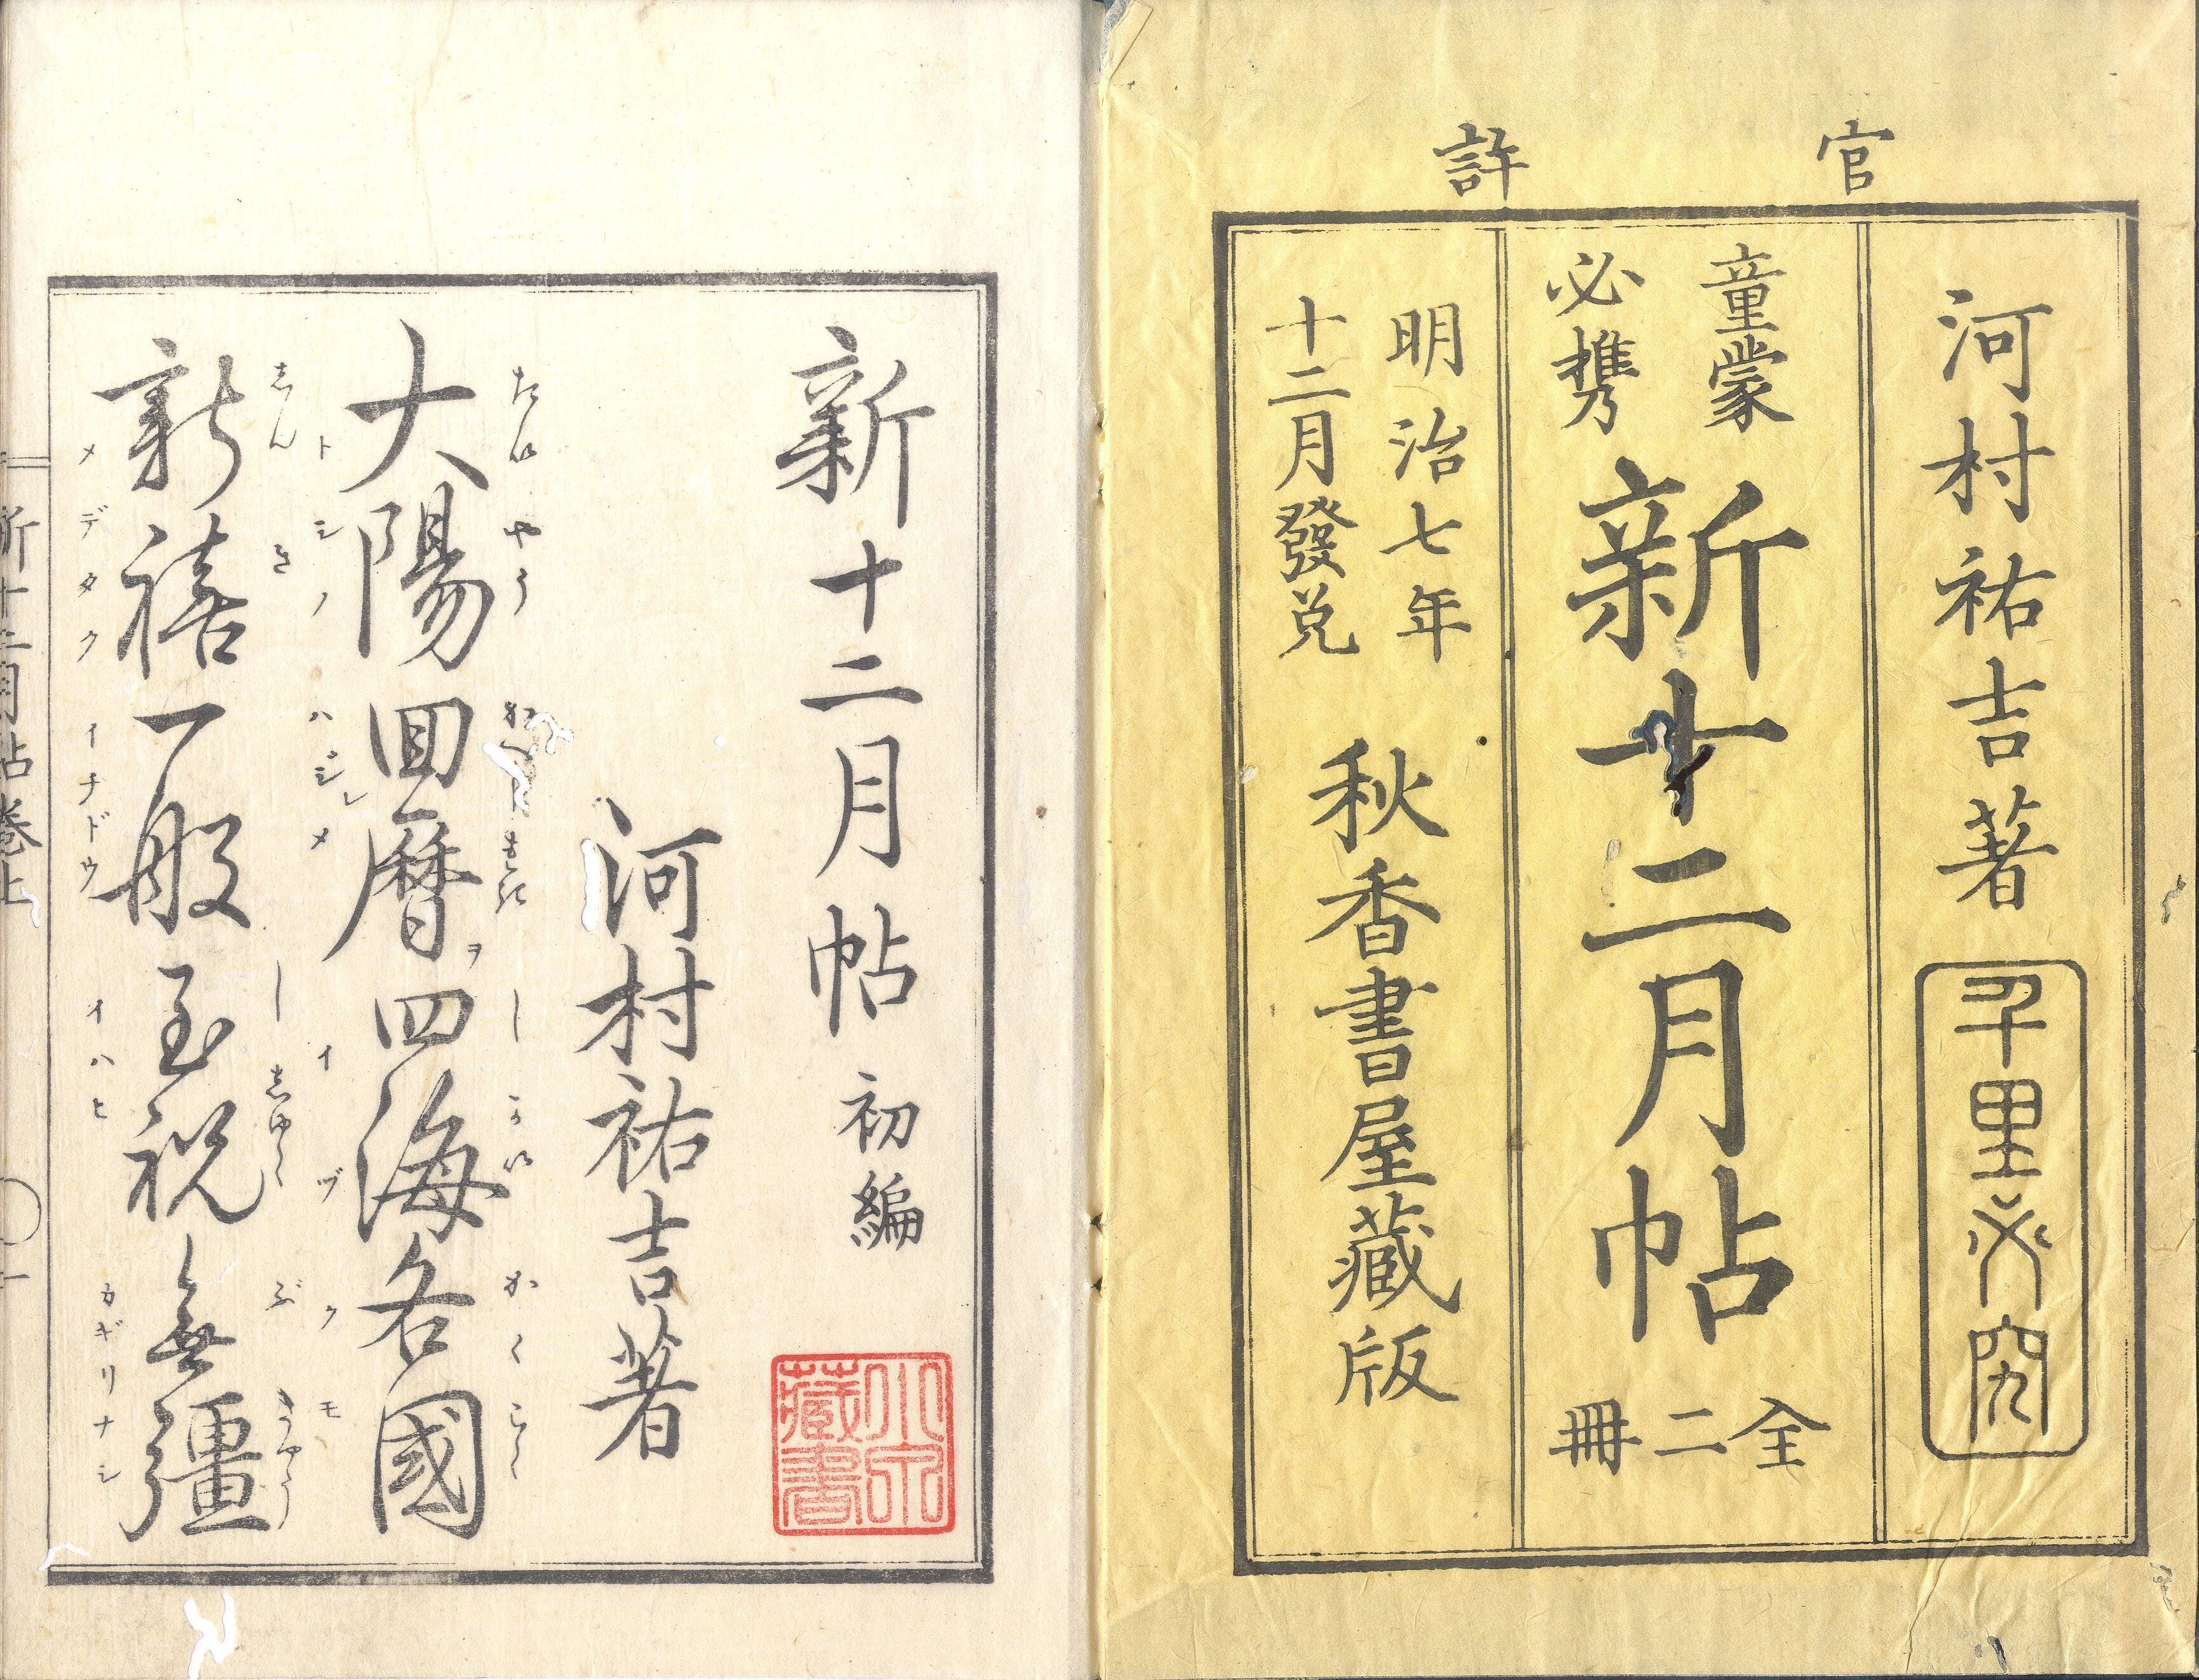 官許
河村祐吉著
千里必究
童蒙
必攜
新十二月帖
全二冊
明治七年
十二月發兌
秋香書屋藏版
新十二月帖 初編
河村祐吉著
たいやう れき しかい かくこく
大陽回曆四海各國
トシノ ハジメヲ イヅクモ
しんき し しゆく ぶきやう
新禧一般至祝無疆
メデタク イチドウ イハヒ カギリナシ
藏書
新十二月帖卷上
一